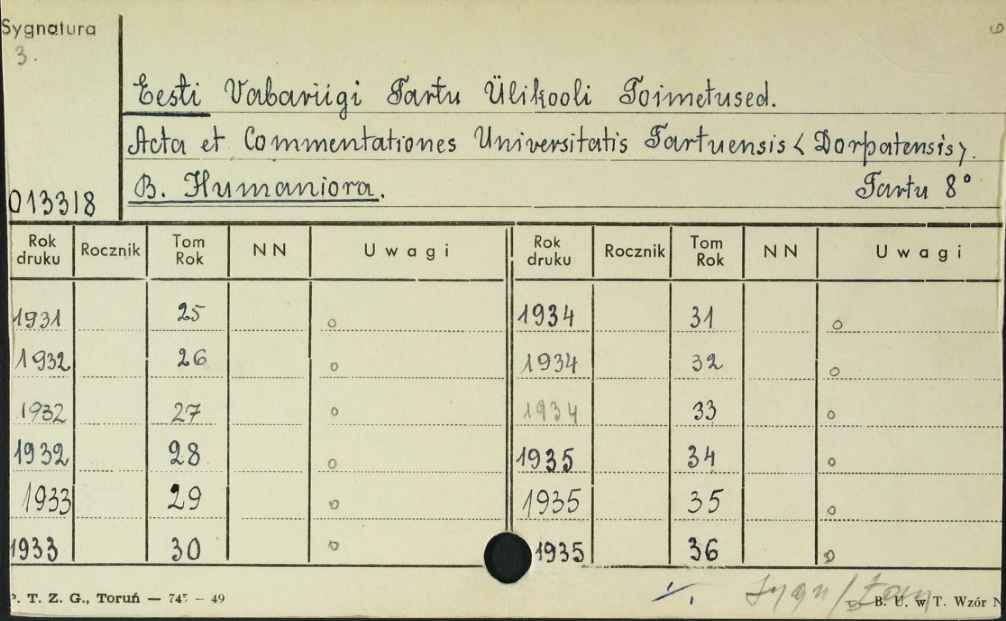 Sygnatura
3.
Eesti Vabariigi Tartu Ülikooli Toimetused.
Acta et Commentationes Universitatis Tartuensis <Dorpatensis>.
B. Humaniora. Tartu 8°
013318
Rok druku Rocznik Tom Rok NN Uwagi Rok druku Rocznik Tom Rok NN Uwagi
1931 25 o 1934 31 o
1932 26 o 1934 32 o
1932 27 o 1934 33 o
1932 28 o 1935 34 o
1933 29 o 1935 35 o
1933 30 o 1935 36 o
P. T. Z. G., Toruń — 745 — 49
B. U. w T. Wzór N